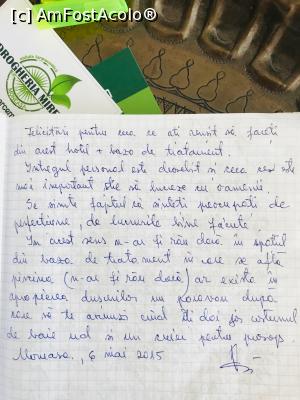 [c] AmFostAcolo®
DROGHERIA
Felicitări pentru ceea ce ați reușit să faceți
din acest hotel + baza de tratament.
Întregul personal este deosebit și ceea ce este
mai important știe să lucreze cu oamenii.
Se simte faptul că sînteți preocupați de
perfecțiune, de lucrurile bine făcute.
În acest sens n-ar fi rău dacă în spațiul
din baza de tratament în care se află
piscina (n-ar fi rău dacă) ar exista în
apropierea dușurilor un paravan după
care să te ascunzi cînd îți dai jos costumul
de baie ud și un cuier pentru prosop.
Moneasa, 6 mai 2015